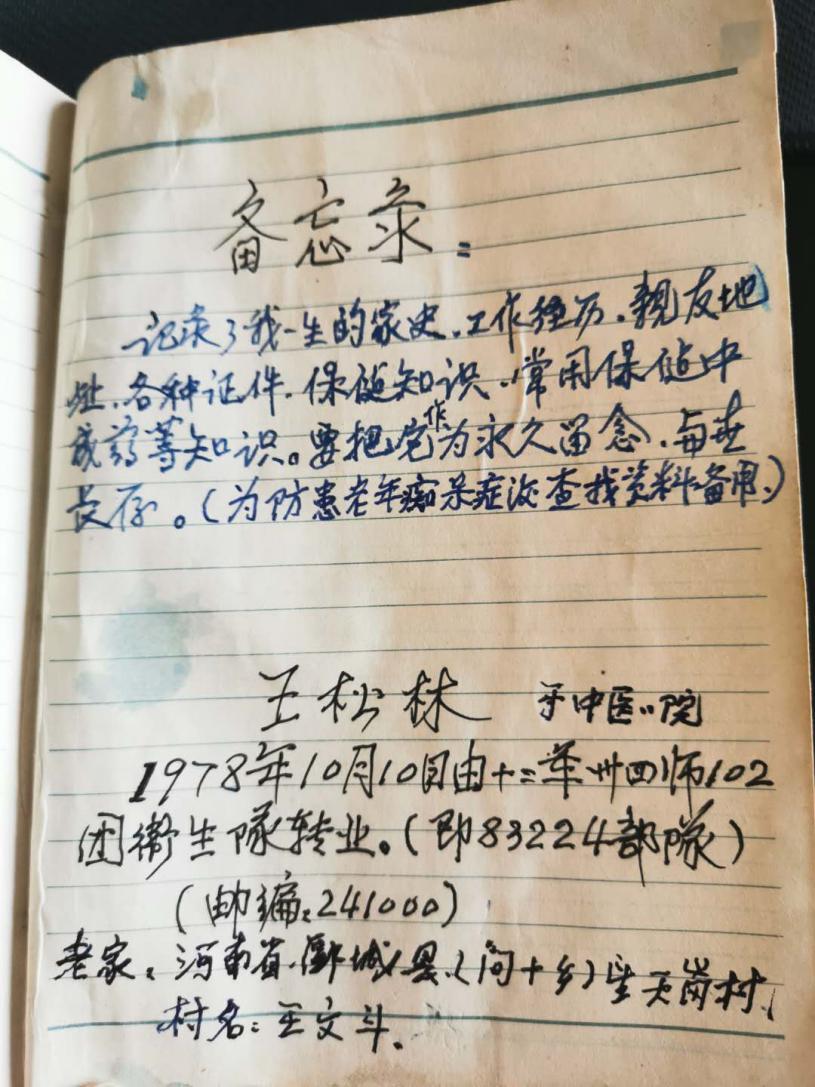 备忘录:
记录了我一生的家史.工作经历.親友地
址.各种证件.保健知识.常用保健中
成药等知识。要把它作为永久留念.与世
长存。(为防患老年痴呆症没查找资料备用.)
王松林 于中医院
1978年10月10日由十二軍卅四师102
团衛生隊转业。(即83224部隊)
(邮编:241000)
老家:河南省.郾城县.(问十乡)坐天岗村.
村名:王文斗.